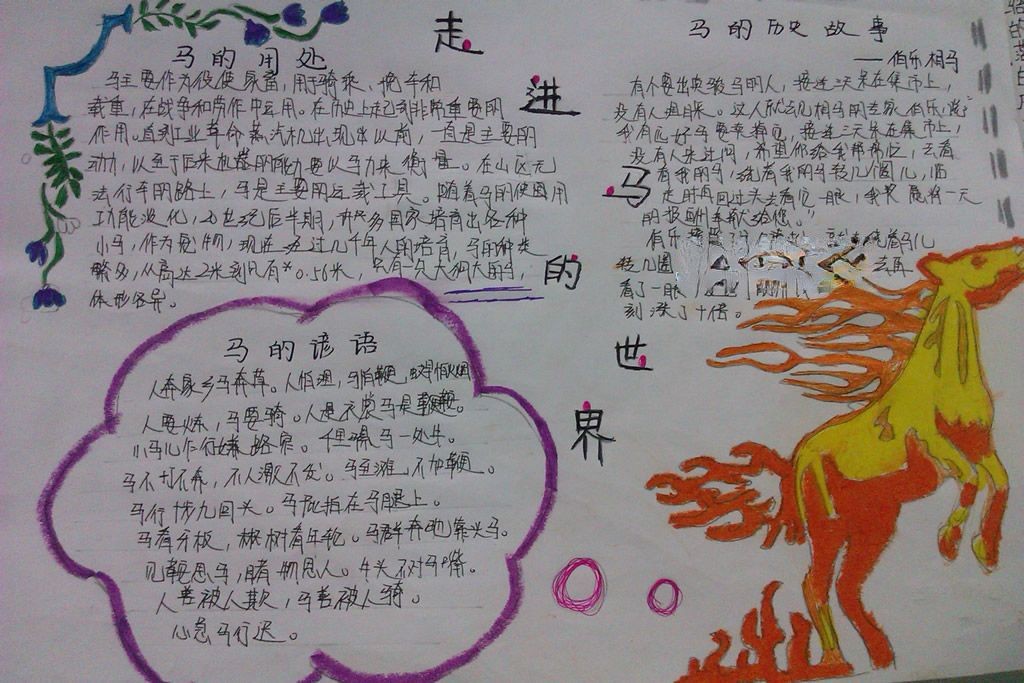 走进马的世界
马的用处
马主要作为役使家畜，用于骑乘、挽车和
载重，在战争和劳作中运用。在历史上起到非常重要的
作用。直到工业革命蒸汽机出现出以前，一直是主要的
动力，以至于后来机器的能力要以马力来衡量。在山区无
法行车的路上，马是主要的运载工具。随着马的使用
功能淡化，20世纪后半期，许多国家培育出各种
小马，作为宠物，现在 过几千年人的培育，马的种类
繁多，从高达2米到只有 0.56米，只有一只大狗大的马，
体形各异。
马的谚语
人奔家乡马奔草。人怕 ，马怕鞭，蚊子怕火烟
人要炼，马要骑。人是衣裳马是鞍。
小马儿乍行嫌路窄。 一处牛。
马不打不奔，不人激不发。马到 不加鞭。
马行十步九回头。马屁拍在马腿上。
马有牙板，树有年轮。马群奔驰靠头马。
见鞍思马，睹物思人。牛头不对马嘴。
人善被人欺，马善被人骑。
心急马行迟。
马的历史故事
——伯乐相马
有个要出卖骏马的人，接连三天呆在集市上，
没有人理睬。这人就去见相马的专家伯乐，说：“
我有匹好马要卖掉它，接连三天呆在集市上，
没有人来过问，希望你给我帮帮忙，去看
看我的马，绕着我的马转几个圈儿，临
走时再回过头去看它一眼，我 愿将一天
的报酬奉献给您。”
伯乐接 着马儿
转几圈 去再
看了一眼
刻涨了十倍。